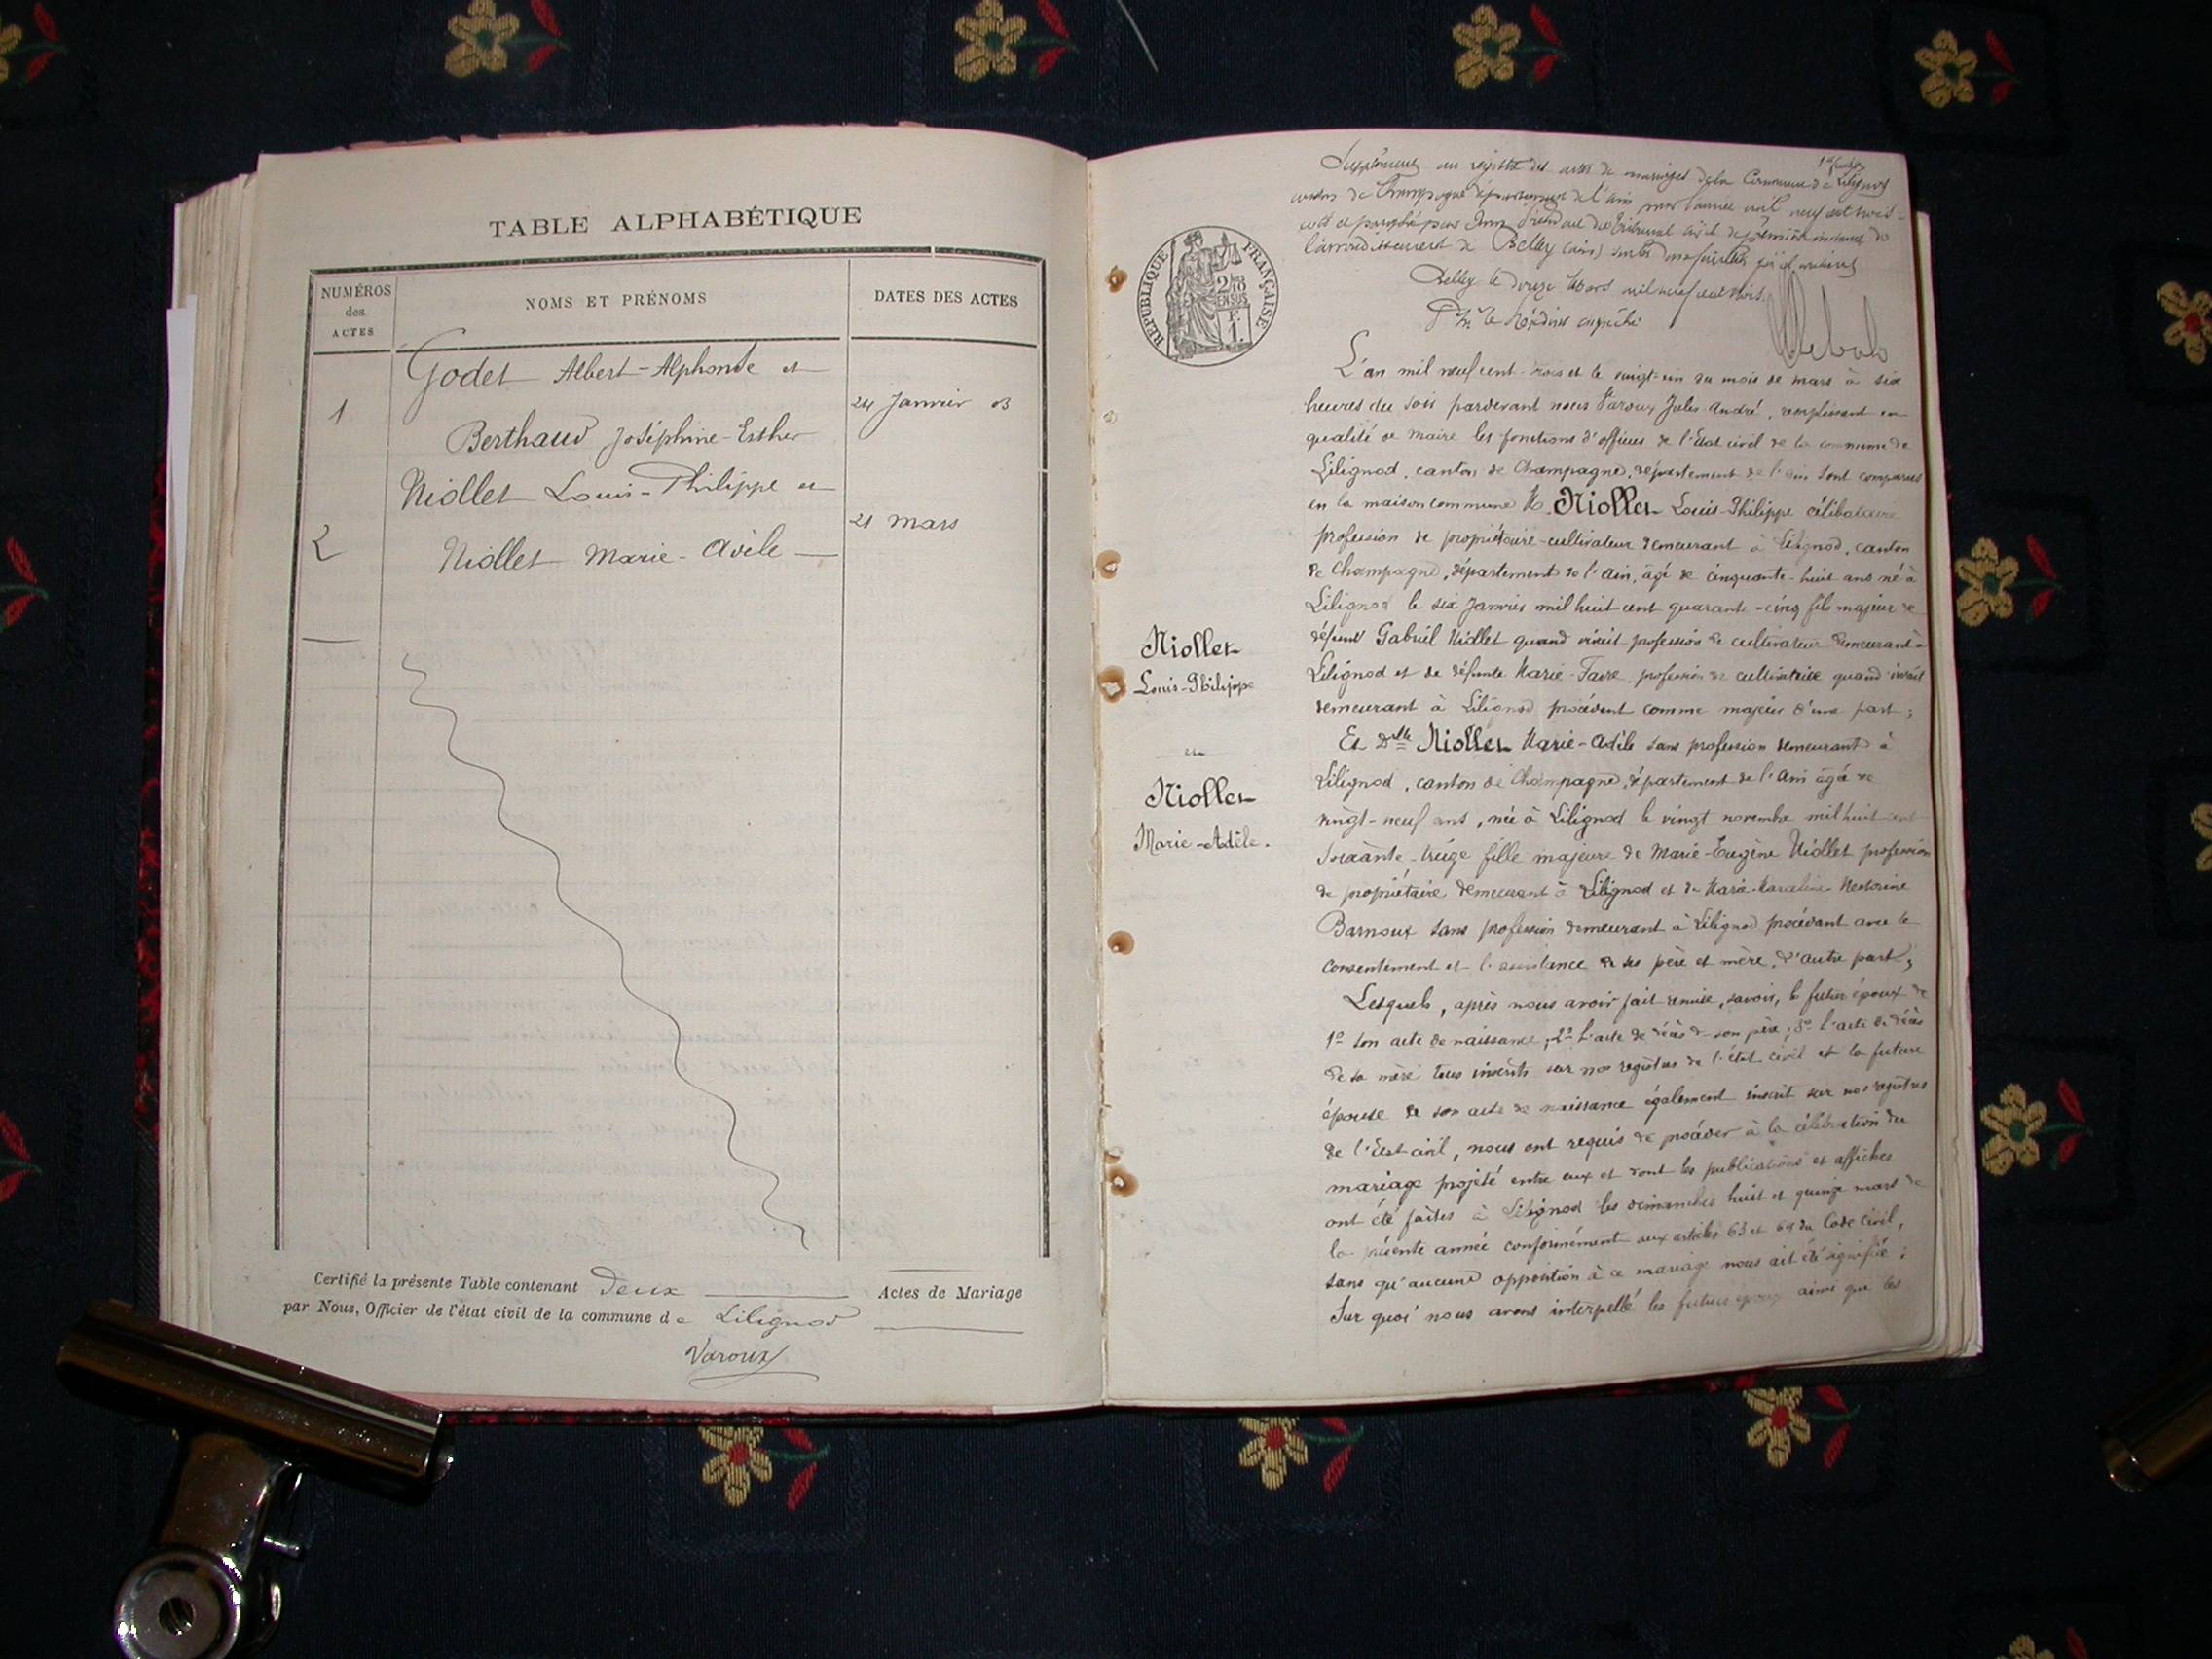 TABLE ALPHABÉTIQUE
NUMÉROS des ACTES
NOMS ET PRÉNOMS
DATES DES ACTES
Godet Albert-Alphonse et
1
24 Janvier 03
Berthaud Joséphine-Esther
Niollet Louis-Philippe et
2
21 mars
Niollet Marie-Adèle
Certifié la présente Table contenant deux Actes de Mariage
par Nous, Officier de l'état civil de la commune de Lilignod
Varoux
1er feuillet
Supplément au registre des actes de mariages de la Commune de Lilignod
canton de Champagne département de l'Ain pour l'année mil neuf cent trois
coté et paraphé par Nous Président du Tribunal civil de première instance de
l'arrondissement de Belley (Ain)
Belley le douze Mars mil neuf cent trois
Pr Mr le Président empêché
RÉPUBLIQUE FRANÇAISE
2/10 EN SUS
F.
1.
L'an mil neuf cent trois et le vingt-un du mois de mars à six
heures du soir pardevant nous Varoux Jules André, remplissant en
qualité de maire les fonctions d'officier de l'état civil de la commune de
Lilignod, canton de Champagne, département de l'ain sont comparus
en la maison commune M. Niollet Louis-Philippe célibataire
profession de propriétaire-cultivateur demeurant à Lilignod, canton
de Champagne, département de l'Ain, âgé de cinquante-huit ans né à
Lilignod le six Janvier mil huit cent quarante-cinq fils majeur de
défunt Gabriel Niollet quand vivait profession de cultivateur demeurant à
Lilignod et de défunte Marie Favre profession de cultivatrice quand vivait
demeurant à Lilignod procédant comme majeur d'une part;
Et Dlle Niollet Marie-Adèle sans profession demeurant à
Lilignod, canton de Champagne, département de l'Ain âgée de
vingt-neuf ans, née à Lilignod le vingt novembre mil huit cent
soixante-treize fille majeure de Marie-Eugène Niollet profession
de propriétaire demeurant à Lilignod et de Marie
Barnoux sans profession demeurant à Lilignod procédant avec le
consentement et l'assistance de ses père et mère, d'autre part;
Lesquels, après nous avoir fait remise, savoir, le futur époux de
1º son acte de naissance; 2º L'acte de décès de son père; 3º l'acte de décès
de sa mère tous inscrits sur nos registres de l'état civil et la future
épouse de son acte de naissance également inscrit sur nos registres
de l'Etat civil, nous ont requis de procéder à la célébration du
mariage projeté entre eux et dont les publications et affiches
ont été faites à Lilignod les dimanches huit et quinze mars de
la présente année conformément aux articles 63 et 64 du Code civil,
sans qu'aucune opposition à ce mariage nous ait été signifiée;
Sur quoi nous avons interpellé les futurs époux ainsi que les
Niollet
Louis-Philippe
et
Niollet
Marie-Adèle.